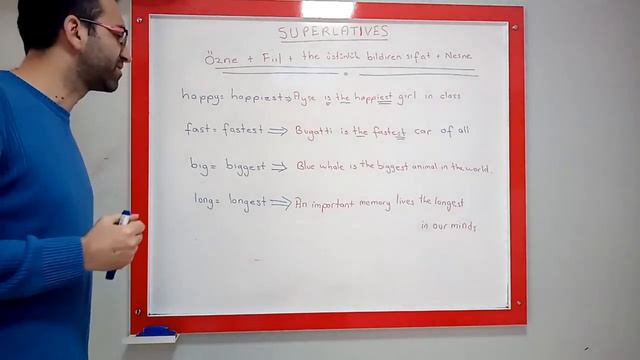 SUPERLATIVES
Özne + Fiil + the üstünlük bildiren sıfat + Nesne
happy = happiest ⇒ Ayşe is the happiest girl in class
fast = fastest ⇒ Bugatti is the fastest car of all
big = biggest ⇒ Blue whale is the biggest animal in the world.
long = longest ⇒ An important memory lives the longest
in our minds